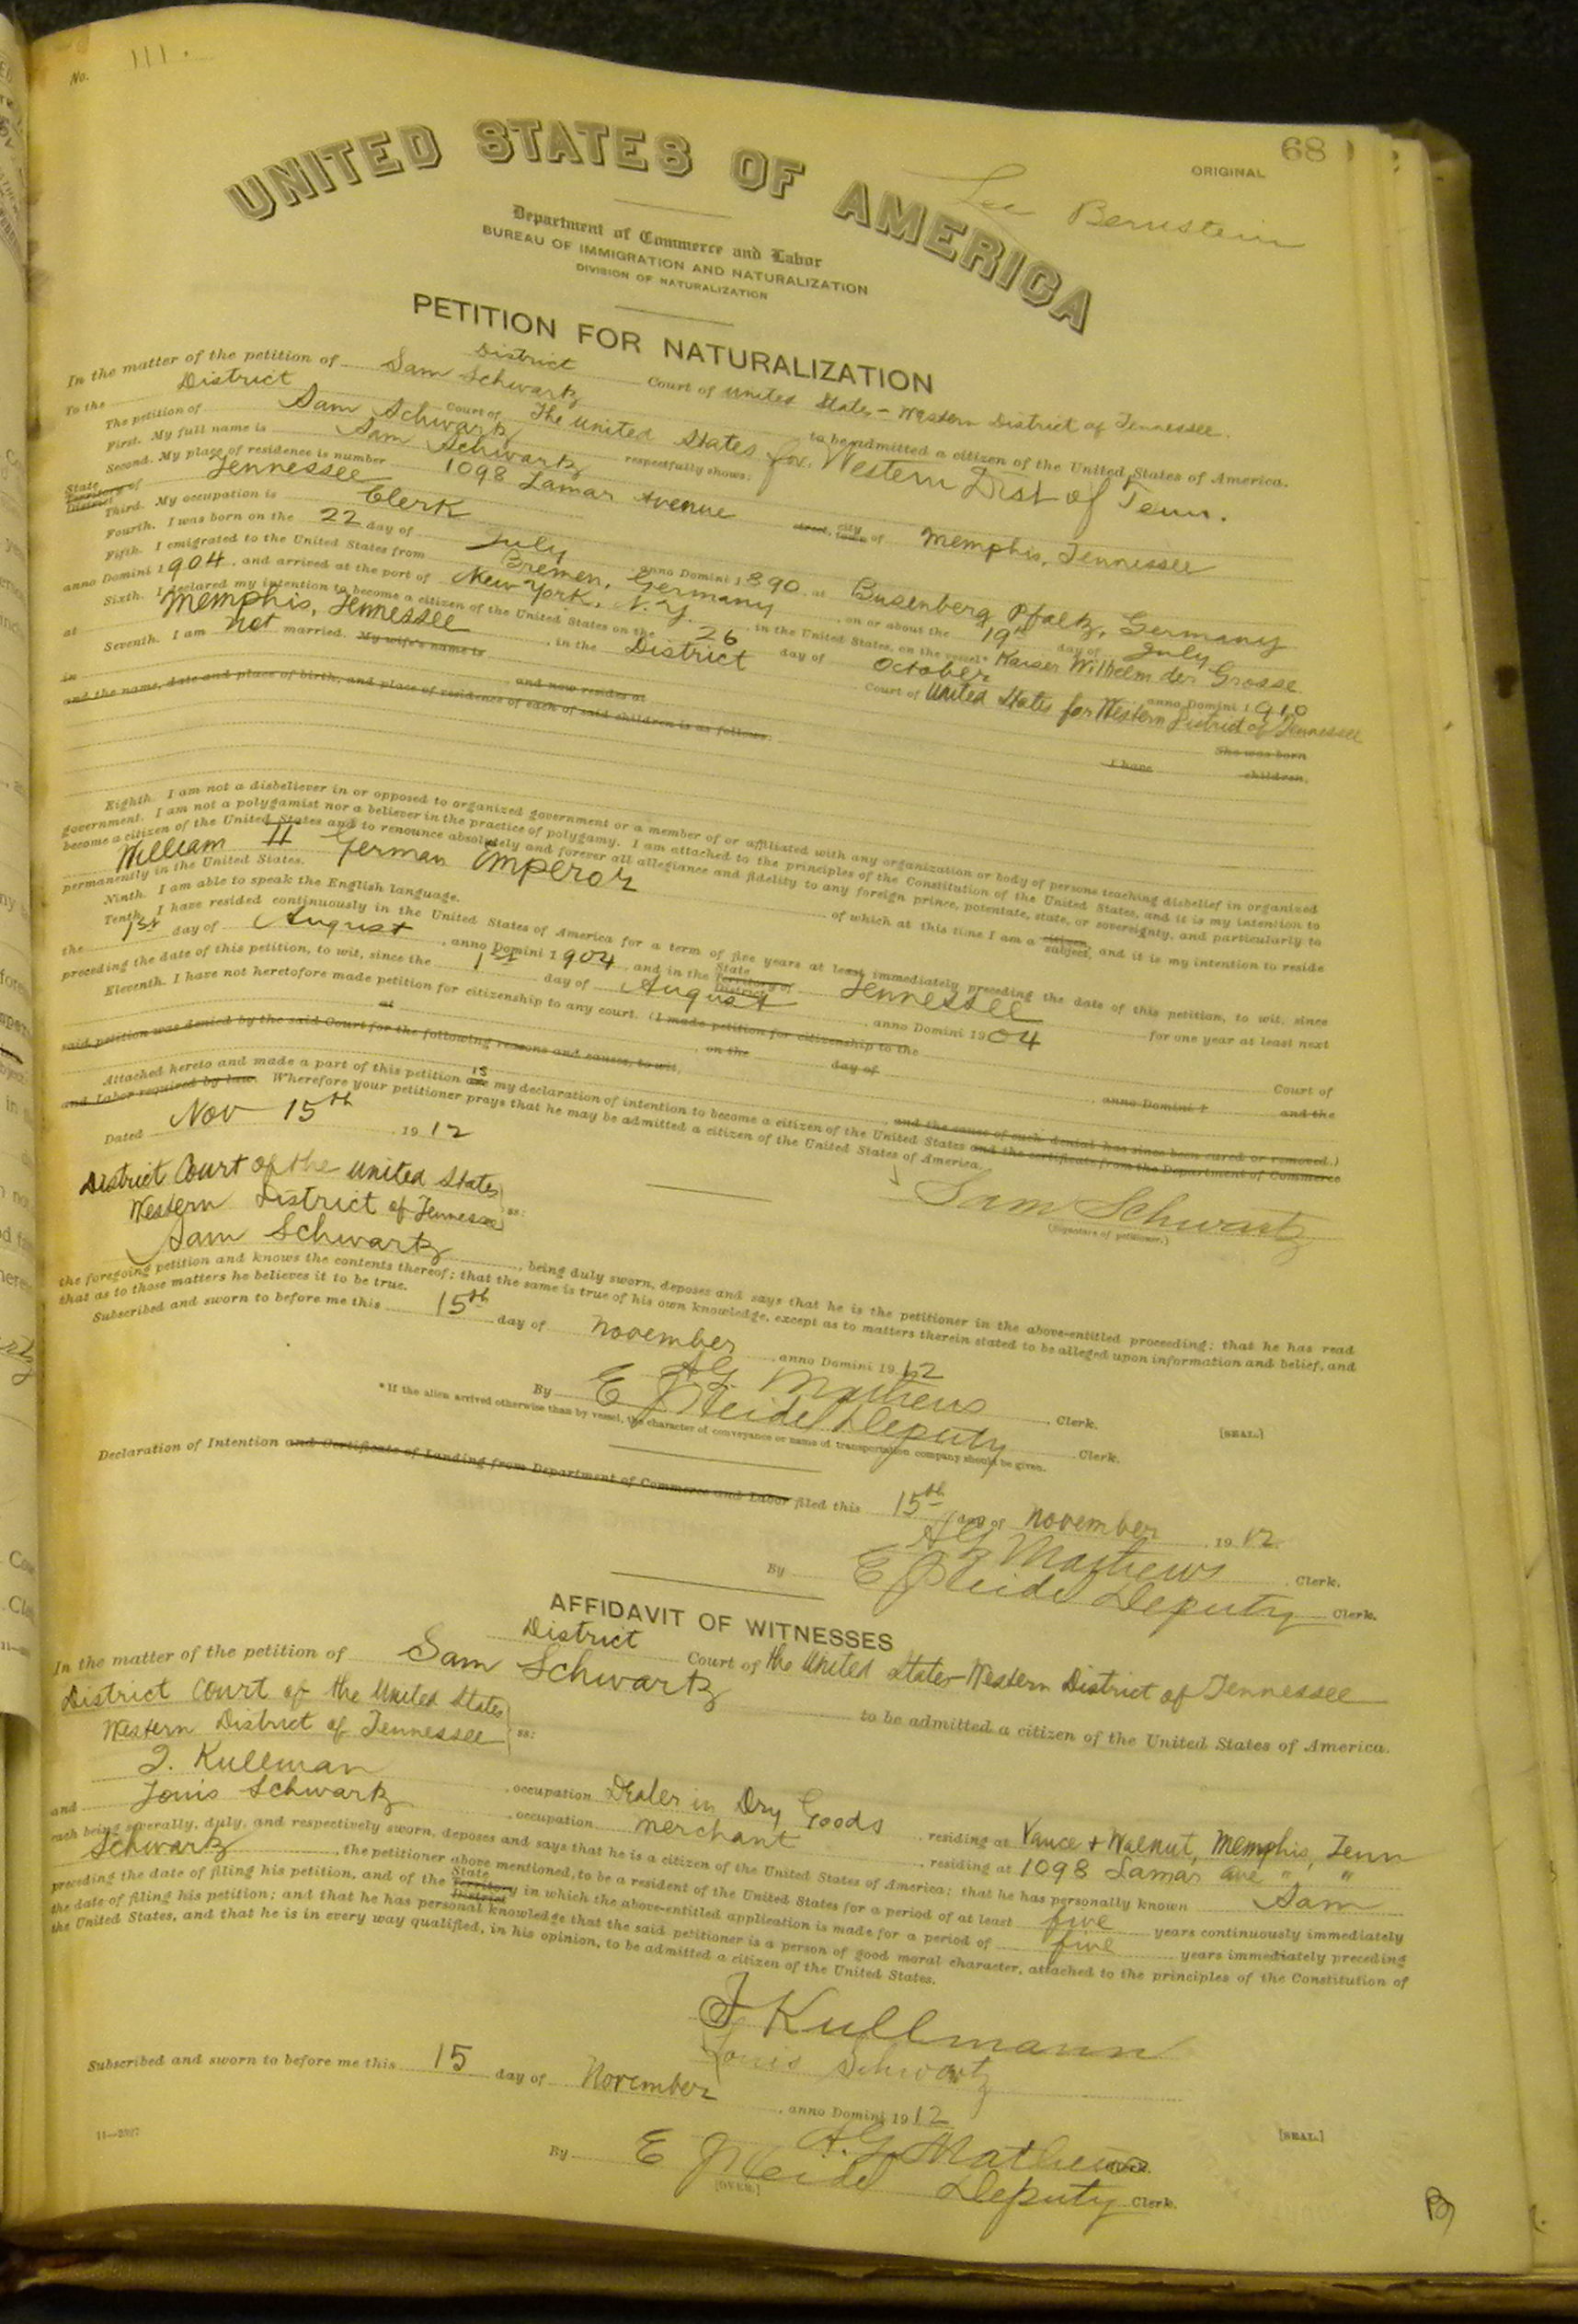 No. 111.
68
ORIGINAL
Lee Bernstein
UNITED STATES OF AMERICA
Department of Commerce and Labor
BUREAU OF IMMIGRATION AND NATURALIZATION
DIVISION OF NATURALIZATION
PETITION FOR NATURALIZATION
District Court of United States - Western District of Tennessee.
In the matter of the petition of Sam Schwartz to be admitted a citizen of the United States of America.
To the District Court of The United States for Western Dist of Tenn.
The petition of Sam Schwartz respectfully shows:
First. My full name is Sam Schwartz
Second. My place of residence is number 1098 Lamar Avenue street, city town of Memphis, Tennessee
State Territory District of Tennessee
Third. My occupation is Clerk
Fourth. I was born on the 22 day of July, anno Domini 1890, at Busenberg Pfaltz, Germany
Fifth. I emigrated to the United States from Bremen, Germany, on or about the 19th day of July
anno Domini 1904, and arrived at the port of New York, N.Y., in the United States, on the vessel* Kaiser Wilhelm der Grosse
Sixth. I declared my intention to become a citizen of the United States on the 26 day of October anno Domini 1910
at Memphis, Tennessee, in the District Court of United States for Western District of Tennessee
Seventh. I am not married. My wife's name is She was born
in and now resides at I have children,
and the name, date and place of birth, and place of residence of each of said children is as follows:
Eighth. I am not a disbeliever in or opposed to organized government or a member of or affiliated with any organization or body of persons teaching disbelief in organized
government. I am not a polygamist nor a believer in the practice of polygamy. I am attached to the principles of the Constitution of the United States, and it is my intention to
become a citizen of the United States and to renounce absolutely and forever all allegiance and fidelity to any foreign prince, potentate, state, or sovereignty, and particularly to
William II German Emperor of which at this time I am a citizen subject, and it is my intention to reside
permanently in the United States.
Ninth. I am able to speak the English language.
Tenth. I have resided continuously in the United States of America for a term of five years at least immediately preceding the date of this petition, to wit, since
the 1st day of August, anno Domini 1904, and in the State Territory District of Tennessee for one year at least next
preceding the date of this petition, to wit, since the 1st day of August, anno Domini 1904
Eleventh. I have not heretofore made petition for citizenship to any court. (I made petition for citizenship to the Court of
at on the day of, anno Domini 1 and the
said petition was denied by the said Court for the following reasons and causes, to wit, and the cause of such denial has since been cured or removed.)
Attached hereto and made a part of this petition are is my declaration of intention to become a citizen of the United States and the certificate from the Department of Commerce
and Labor required by law. Wherefore your petitioner prays that he may be admitted a citizen of the United States of America.
Dated Nov 15th, 1912
Sam Schwartz
(Signature of petitioner.)
District Court of the United States
Western District of Tennessee ss:
Sam Schwartz, being duly sworn, deposes and says that he is the petitioner in the above-entitled proceeding; that he has read
the foregoing petition and knows the contents thereof; that the same is true of his own knowledge, except as to matters therein stated to be alleged upon information and belief, and
that as to those matters he believes it to be true.
Subscribed and sworn to before me this 15th day of November, anno Domini 1912
A G Mathews, Clerk.
[SEAL.]
By E J Heidel Deputy Clerk.
* If the alien arrived otherwise than by vessel, the character of conveyance or name of transportation company should be given.
Declaration of Intention and Certificate of Landing from Department of Commerce and Labor filed this 15th day of November, 1912.
A G Mathews, Clerk.
By E J Heidel Deputy Clerk.
AFFIDAVIT OF WITNESSES
District Court of the United States Western District of Tennessee
In the matter of the petition of Sam Schwartz to be admitted a citizen of the United States of America.
District Court of the United States
Western District of Tennessee ss:
I. Kullman, occupation Dealer in Dry Goods, residing at Vance + Walnut, Memphis, Tenn
and Louis Schwartz, occupation merchant, residing at 1098 Lamar ave " "
each being severally, duly, and respectively sworn, deposes and says that he is a citizen of the United States of America; that he has personally known Sam
Schwartz, the petitioner above mentioned, to be a resident of the United States for a period of at least five years continuously immediately
preceding the date of filing his petition, and of the State Territory District in which the above-entitled application is made for a period of five years immediately preceding
the date of filing his petition; and that he has personal knowledge that the said petitioner is a person of good moral character, attached to the principles of the Constitution of
the United States, and that he is in every way qualified, in his opinion, to be admitted a citizen of the United States.
I Kullmann
Louis Schwartz
Subscribed and sworn to before me this 15 day of November, anno Domini 1912
A.G. Mathews Clerk.
[SEAL.]
By E J Heidel Deputy Clerk.
11-2327
[OVER.]